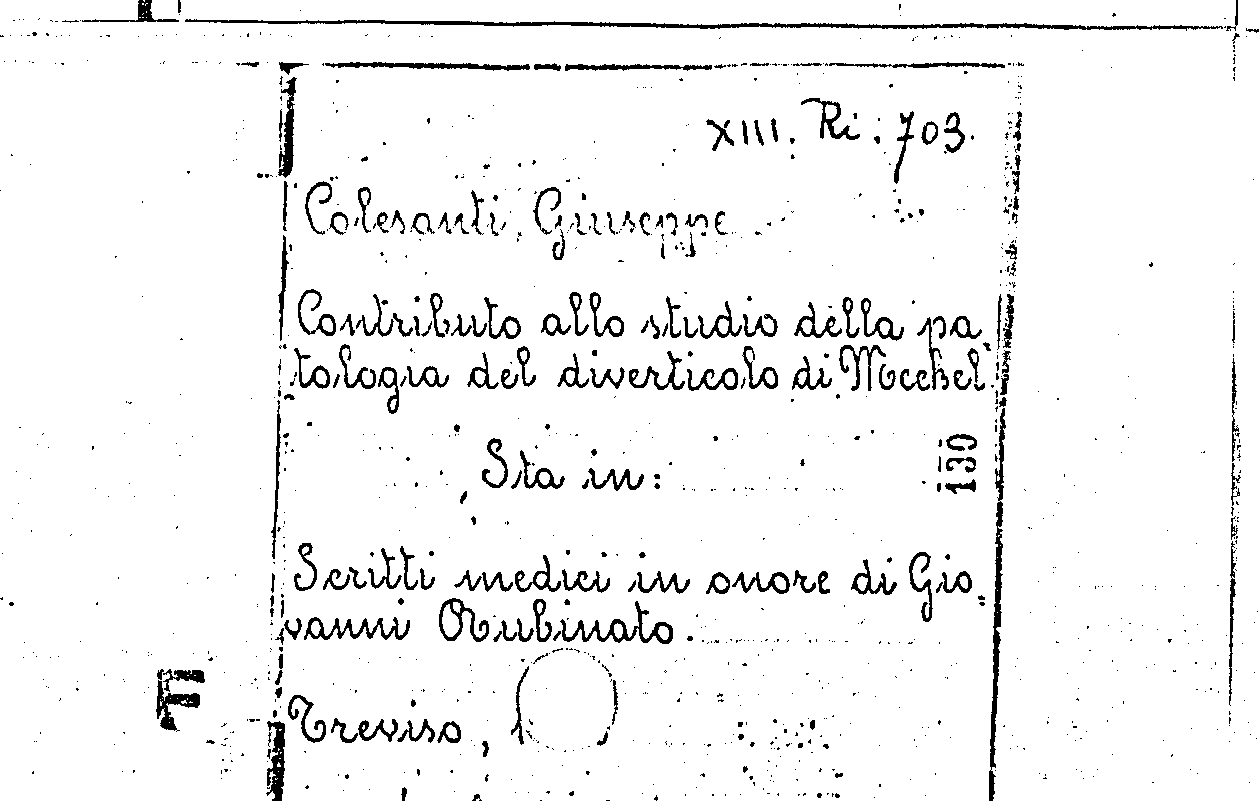 XIII. Ri. 703.
Colesanti, Giuseppe
Contributo allo studio della pa-
tologia del diverticolo di Meckel
130
Sta in:
Scritti medici in onore di Gio-
vanni Rubinato.
F
Treviso, 1